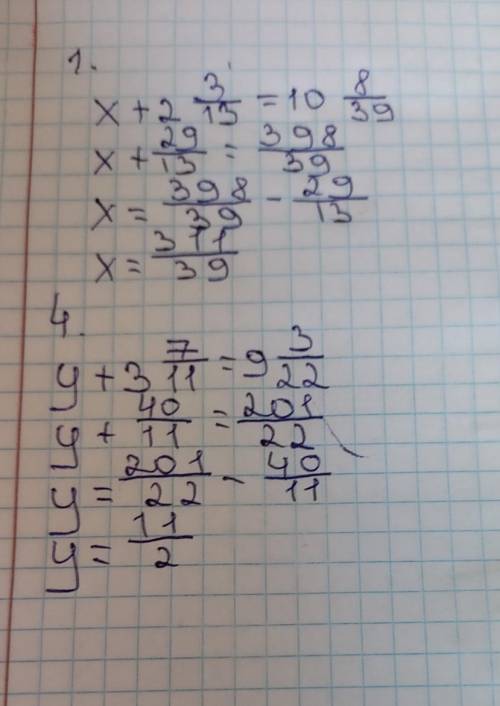 1.
x + 2 3/13 = 10 8/39
x + 29/13 = 398/39
x = 398/39 - 29/13
x = 311/39
4.
y + 3 7/11 = 9 3/22
y + 40/11 = 201/22
y = 201/22 - 40/11
y = 11/2